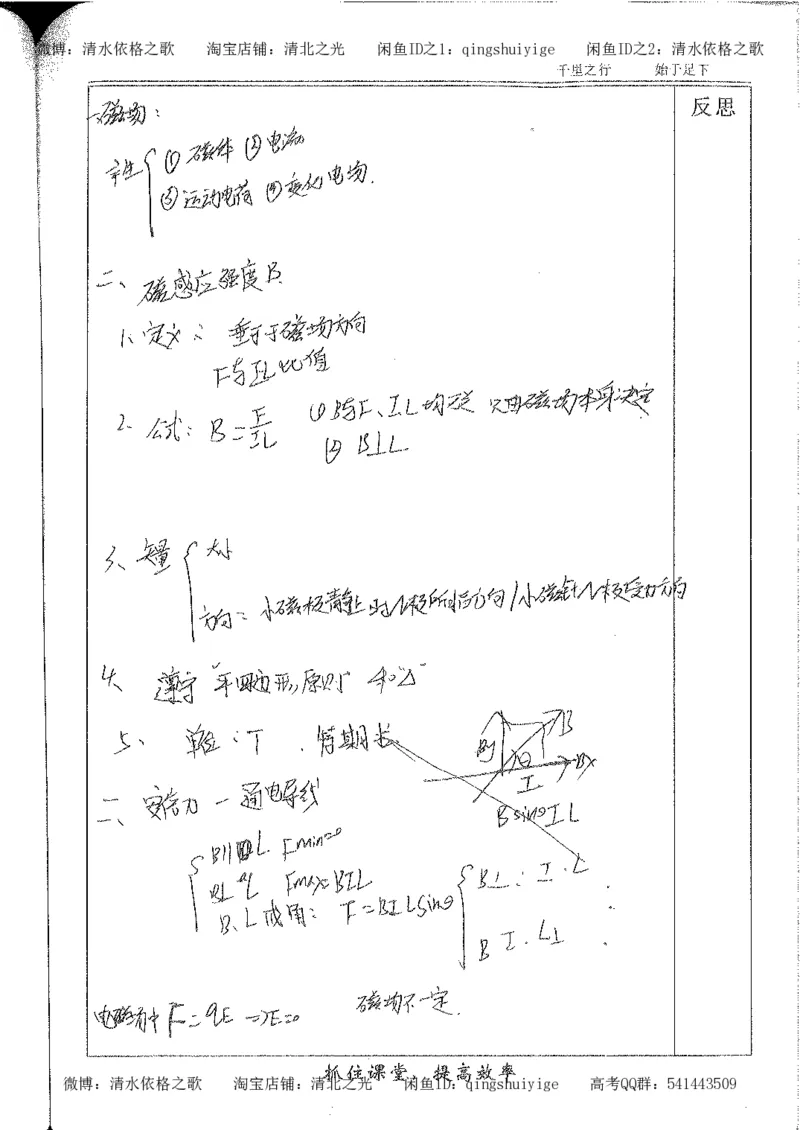 微博：清水依格之歌 淘宝店铺：清北之光 闲鱼ID之1：qingshuiyige 闲鱼ID之2：清水依格之歌
千里之行 始于足下
反思
一磁场：
① 磁体 ② 电流
③ 运动电荷 ④ 变化电场.
二、磁感应强度B
1. 定义： 垂于磁场方向
F与IL比值
2. 公式：B=F/IL ① B与F、IL均无关 只由磁场本身决定
② B⊥L
3、矢量 大小
方向：小磁极静止时N极所指方向/小磁针N极受力方向
4、遵守“平四边形”原则 和“Δ”
5、单位：T . 特斯拉
By B
θ Bx
I
B sinθ IL
三、安培力—通电导线
B∥L Fmin=0
B⊥L Fmax=BIL
B、L成角： F=BILsinθ
B⊥: I. L
B I. L⊥
F=qE ⇒E=0 磁场不一定.
抓住课堂，提高效率
微博：清水依格之歌 淘宝店铺：清北之光 闲鱼ID：qingshuiyige 高考QQ群：541443509